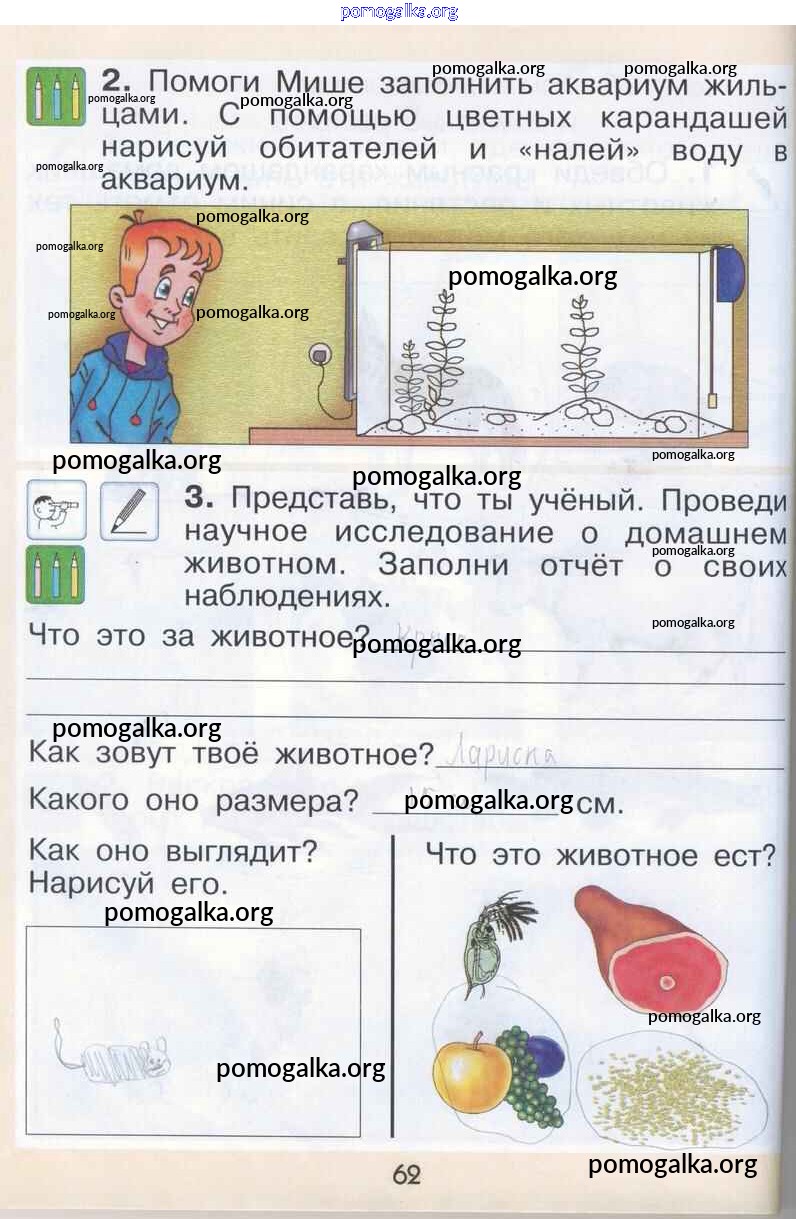 pomogalka.org
2. Помоги Мише заполнить аквариум жиль-
цами. С помощью цветных карандашей
нарисуй обитателей и «налей» воду в
аквариум.
pomogalka.org
pomogalka.org
pomogalka.org
pomogalka.org
pomogalka.org
pomogalka.org
pomogalka.org
pomogalka.org
pomogalka.org
pomogalka.org
pomogalka.org
pomogalka.org
pomogalka.org
3. Представь, что ты учёный. Проведи
научное исследование о домашнем
животном. Заполни отчёт о своих
наблюдениях.
pomogalka.org
pomogalka.org
Что это за животное?
pomogalka.org
pomogalka.org
Как зовут твоё животное? Лариска
Какого оно размера? см.
pomogalka.org
Как оно выглядит?
Нарисуй его.
pomogalka.org
Что это животное ест?
pomogalka.org
pomogalka.org
62
pomogalka.org